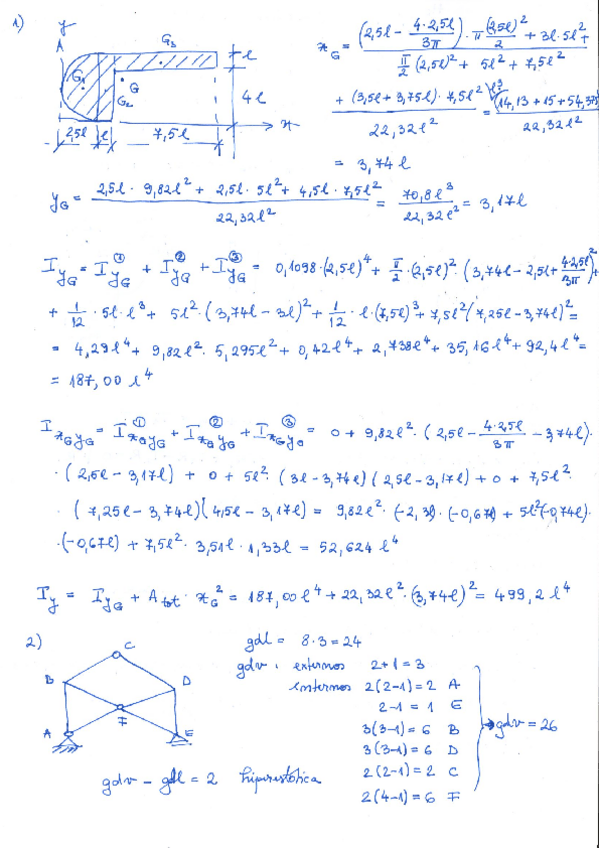 1)
y
A
G₁
G₂
G₃
G
l
4l
2,5l l 7,5l
x
x_G = ((2,5l - 4·2,5l/3π)·π(2,5l)²/2 + 3l·5l² +
π/2 (2,5l)² + 5l² + 7,5l²
+ (3,5l + 3,75l)·7,5l² / 22,32l² = (14,13 + 15 + 54,375)l³ / 22,32l²
= 3,74l
y_G = (2,5l · 9,82l² + 2,5l · 5l² + 4,5l · 7,5l²) / 22,32l² = 70,8l³ / 22,32l² = 3,17l
I_yG = I_yG^① + I_yG^② + I_yG^③ = 0,1098·(2,5l)⁴ + π/2·(2,5l)²·(3,74l - 2,5l + 4·2,5l/3π)² +
+ 1/12 · 5l·l³ + 5l²·(3,74l - 3l)² + 1/12 · l·(7,5l)³ + 7,5l²(7,25l - 3,74l)² =
= 4,29l⁴ + 9,82l²· 5,295l² + 0,42l⁴ + 2,738l⁴ + 35,16l⁴ + 92,4l⁴ =
= 187,00 l⁴
I_xGyG = I_xGyG^① + I_xGyG^② + I_xGyG^③ = 0 + 9,82l² · (2,5l - 4·2,5l/3π - 3,74l)·
·(2,5l - 3,17l) + 0 + 5l²·(3l - 3,74l)(2,5l - 3,17l) + 0 + 7,5l²·
·(7,25l - 3,74l)(4,5l - 3,17l) = 9,82l²·(-2,3l)·(-0,67l) + 5l²(-0,74l)·
·(-0,67l) + 7,5l²·3,51l·1,33l = 52,624 l⁴
I_y = I_yG + A_tot·x_G² = 187,00l⁴ + 22,32l²·(3,74l)² = 499,2 l⁴
2)
A
B
C
D
E
F
gdl = 8·3 = 24
gdv. externos 2+1 = 3
internos 2(2-1) = 2 A
2-1 = 1 E
3(3-1) = 6 B
3(3-1) = 6 D
2(2-1) = 2 C
2(4-1) = 6 F
gdv = 26
gdv - gdl = 2 hiperestática